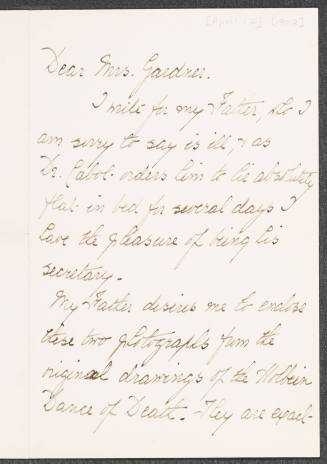 [April 12] [1902]
Dear Mrs. Gardner.
I write for my Father, who I
am sorry to say is ill, & as
Dr. Cabot orders him to lie absolutely
flat in bed for several days I
have the pleasure of being his
secretary.
My Father desires me to enclose
these two photographs from the
original drawings of the Holbein
Dance of Death. They are exact-